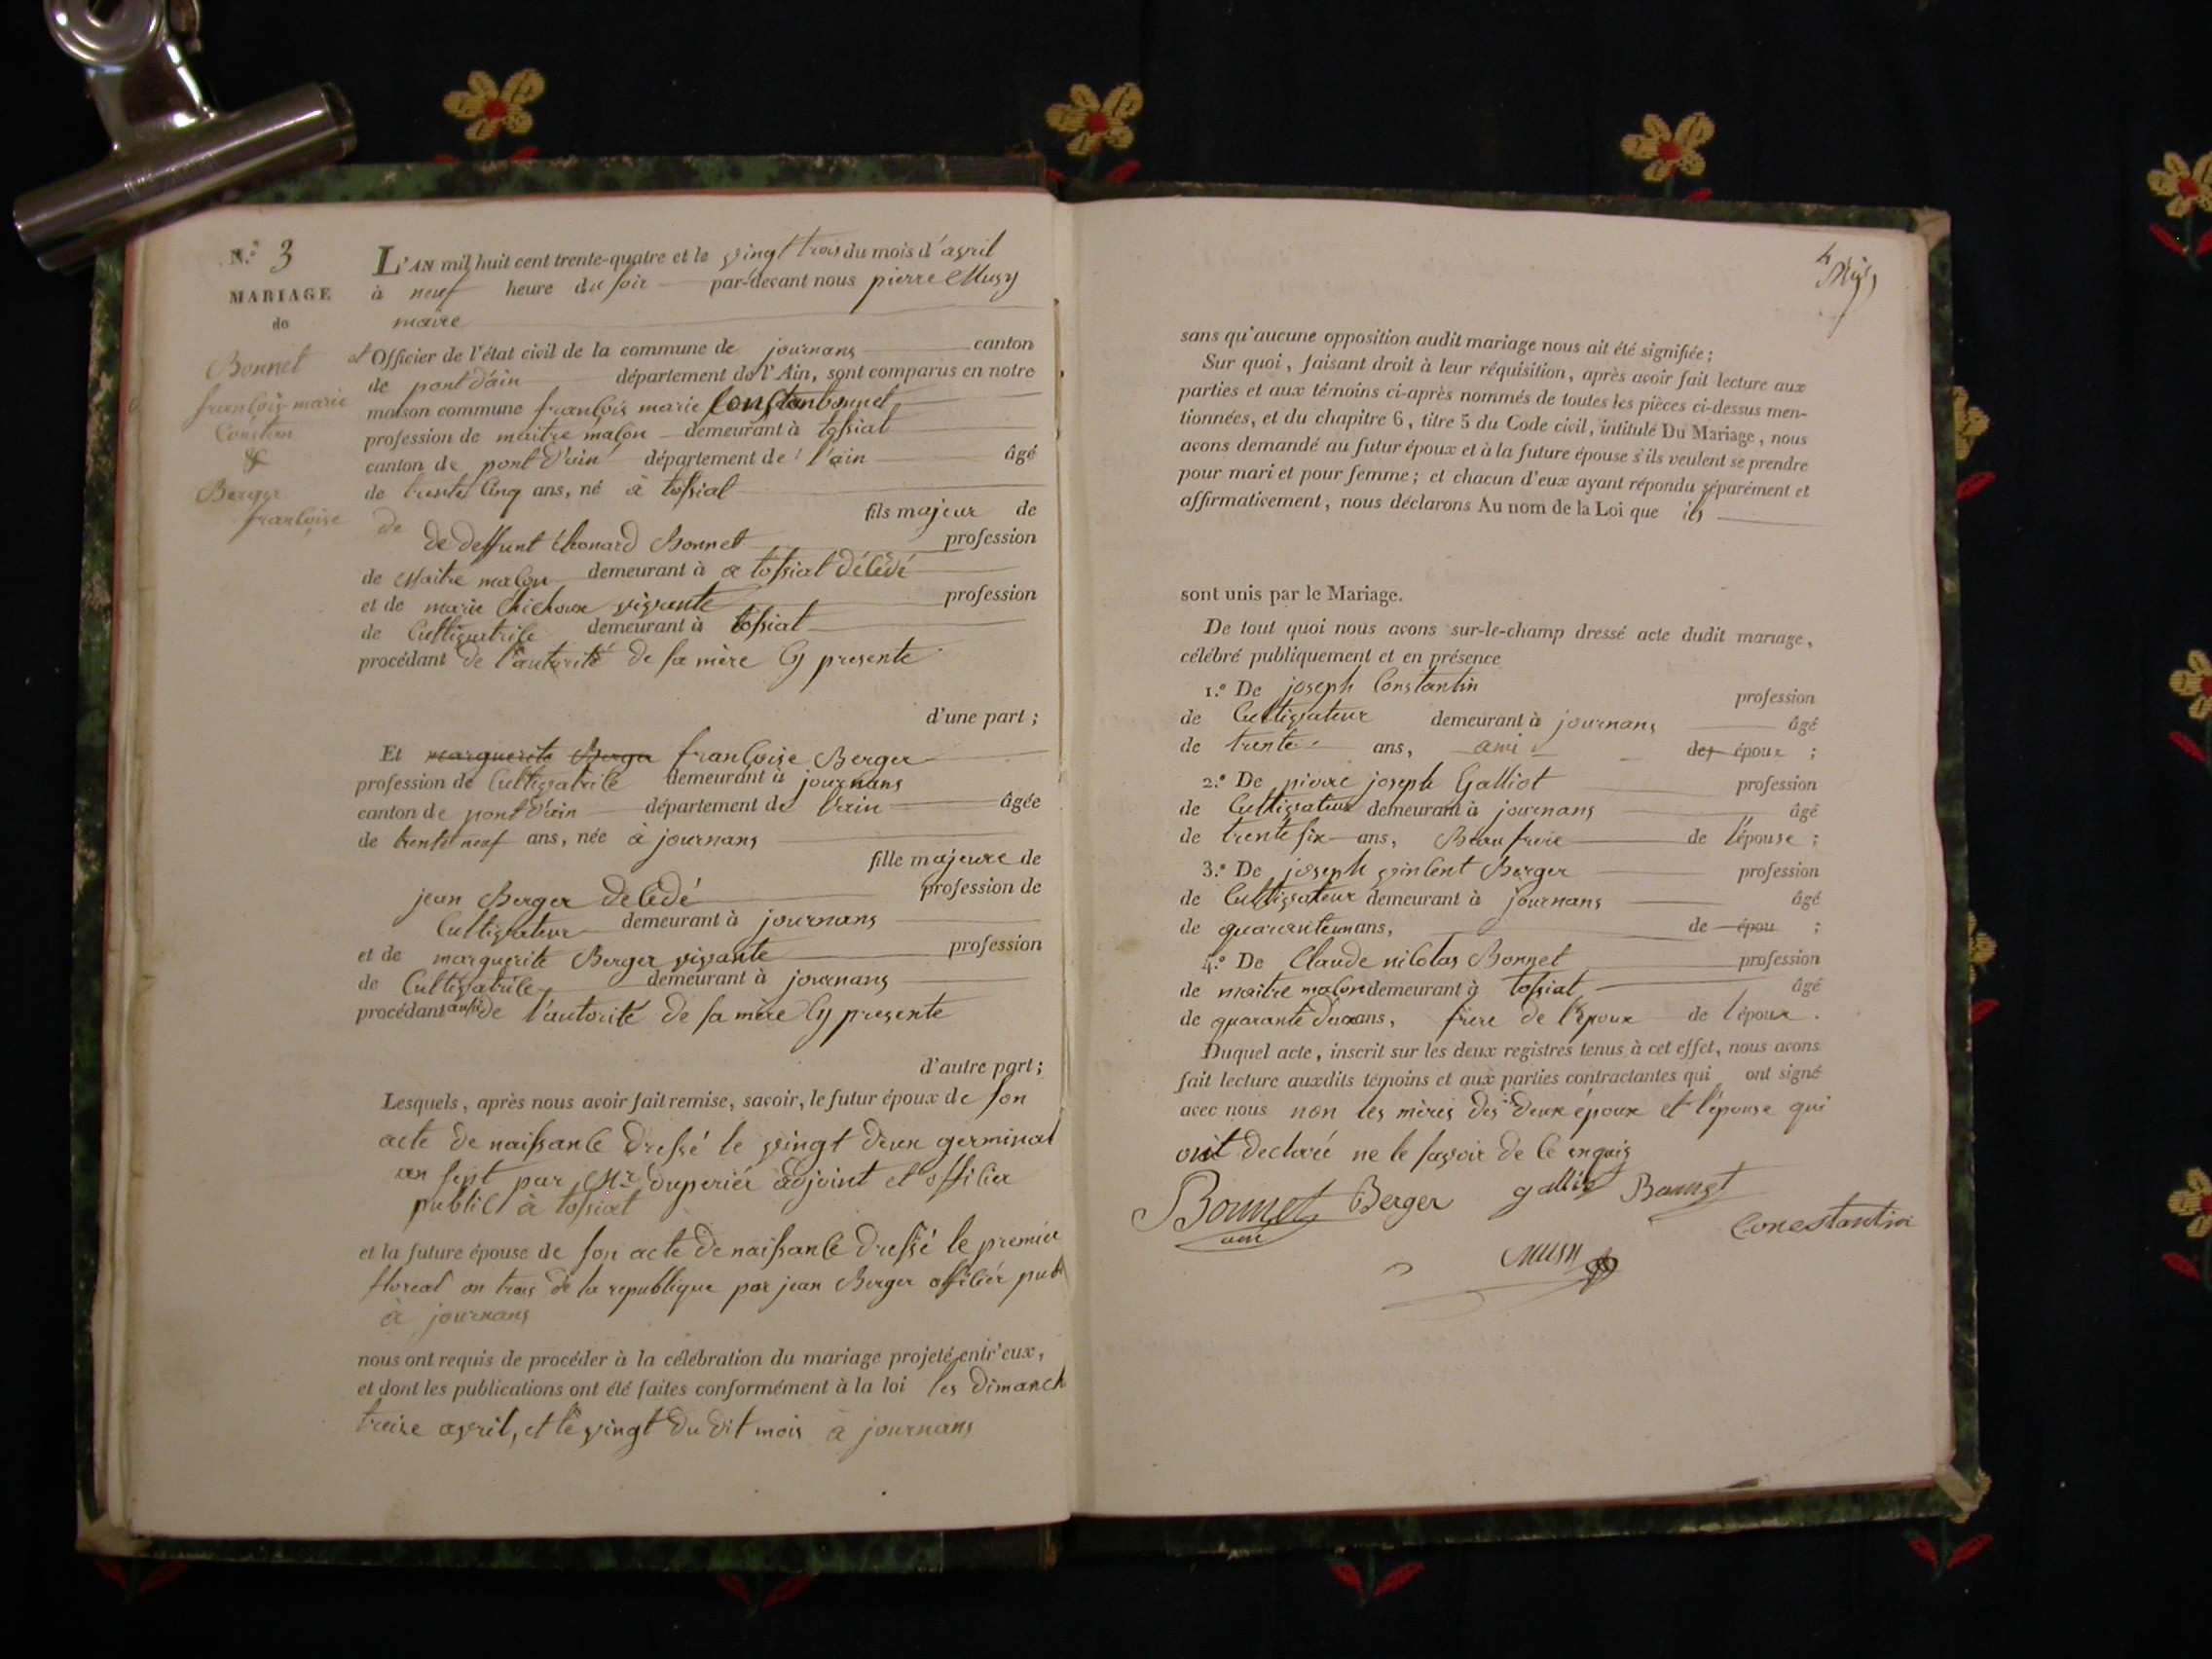 N.º 3
MARIAGE
de
Bonnet
françois marie
Constan
&
Berger
françoise
L'AN mil huit cent trente-quatre et le vingt trois du mois d'avril
à neuf heure du soir par-devant nous pierre Musy
maire
et Officier de l'état civil de la commune de journans canton
de pont d'ain département de l'Ain, sont comparus en notre
maison commune françois marie Constan bonnet
profession de maitre maçon demeurant à tossiat
canton de pont d'ain département de l'ain âgé
de trente Cinq ans, né à tossiat
fils majeur de
de
de deffunt Léonard Bonnet profession
de Maitre maçon demeurant à a tossiat décédé
et de marie Chichoux vivante profession
de Cultivatrice demeurant à tossiat
procédant de l'autorité de sa mère Cy presente
d'une part ;
Et marguerite Berger françoise Berger
profession de Cultivatrice demeurant à journans
canton de pont d'ain département de l'ain âgée
de trente neuf ans, née à journans
fille majeure de
jean Berger décédé profession de
Cultivateur demeurant à journans
et de marguerite Berger vivante profession
de Cultivatrice demeurant à journans
procédant aussi de l'autorité de sa mère Cy presente
d'autre part ;
Lesquels, après nous avoir fait remise, savoir, le futur époux de son
acte de naissance dressé le vingt deux germinal
an sept par Mr duperiér adjoint et officier
public à tossiat
et la future épouse de son acte de naissance dressé le premier
floreal an trois de la republique par jean Berger officiér publ
à journans
nous ont requis de procéder à la célébration du mariage projeté entr'eux,
et dont les publications ont été faites conformément à la loi les dimanch
treize avril, et le vingt du dit mois à journans
4
sans qu'aucune opposition audit mariage nous ait été signifiée ;
Sur quoi, faisant droit à leur réquisition, après avoir fait lecture aux
parties et aux témoins ci-après nommés de toutes les pièces ci-dessus men-
tionnées, et du chapitre 6, titre 5 du Code civil, intitulé Du Mariage, nous
avons demandé au futur époux et à la future épouse s'ils veulent se prendre
pour mari et pour femme ; et chacun d'eux ayant répondu séparément et
affirmativement, nous déclarons Au nom de la Loi que ils
sont unis par le Mariage.
De tout quoi nous avons sur-le-champ dressé acte dudit mariage,
célébré publiquement et en présence
1.º De joseph Constantin profession
de Cultivateur demeurant à journans âgé
de trente ans, ami des époux ;
2.º De pierre joseph Galliot profession
de Cultivateur demeurant à journans âgé
de trente six ans, Beau frere de l'épouse ;
3.º De joseph vincent Berger profession
de Cultivateur demeurant à journans âgé
de quarante un ans, de épou ;
4.º De Claude nicolas Bonnet profession
de maitre maçon demeurant à tossiat âgé
de quarante deux ans, frere de l'époux de l'époux.
Duquel acte, inscrit sur les deux registres tenus à cet effet, nous avons
fait lecture auxdits témoins et aux parties contractantes qui ont signé
avec nous non les mères des deux époux et l'épouse qui
ont declaré ne le savoir de ce enquis
Bonnet Berger Bonnet
Conestantin
Musy